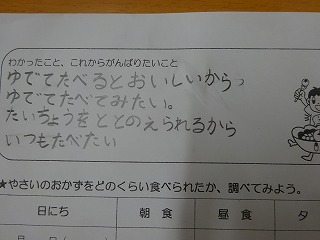 わかったこと、これからがんばりたいこと
ゆでてたべるとおいしいから
ゆでてたべてみたい。
たいちょうをととのえられるから
いつもたべたい
★やさいのおかずをどのくらい食べられたか、調べてみよう。
日にち 朝 食 昼 食 夕